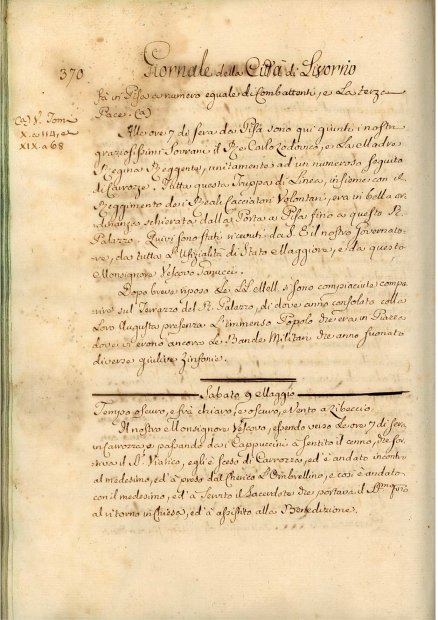 370 Giornale della Città di Livorno
fà in Pisa a numero eguale di Combattenti, e La terza
Pace. (a)
(a) V. Tom.
X. a 114, et
XIX. a 68
Alle ore 7 di sera da Pisa sono qui giunti i nostri
graziosissimi Sovrani il Re Carlo Lodovico, e La Madre
Regina Reggente, unitamente ad un numeroso seguito
di Carrozze. Tutta questa Truppa di Linea, insieme con il
Reggimento dei Reali Cacciatori Volontari, era in bella or
dinanza schierata dalla Porta a Pisa fino a questo R.
Palazzo. Quivi sono stati ricevuti da S. E. il nostro Governato
re, da tutta l'Ufizialità di Stato Maggiore, e da questo
Monsignore Vescovo Ganucci.
Dopo breve riposo Le LL. MM. si sono compiaciute compa
rire sul Terrazzo del R. Palazzo, di dove anno consolato colla
Loro Augusta presenza L'immenso Popolo che era in Piazza
dove vi erono ancora Le Bande Militari che anno suonato
diverse giulive Zinfonie.
Sabato 9 Maggio
Tempo oscuro, e frà chiaro, e oscuro, e Vento a Libeccio.
Il nostro Monsignore Vescovo, essendo verso Le ore 7 di sera
in Carrozza e passando da i Cappuccini à sentito il cenno, che sor
tiva il SS. Viatico, egli è sceso di Carrozza, ed è andato incontro
al medesimo, ed à preso dal Cherico L'Ombrellino, e così è andato
con il medesimo, ed à servito il Sacerdote che portava il
al ritorno in Chiesa, ed à assistito alla Benedizione.